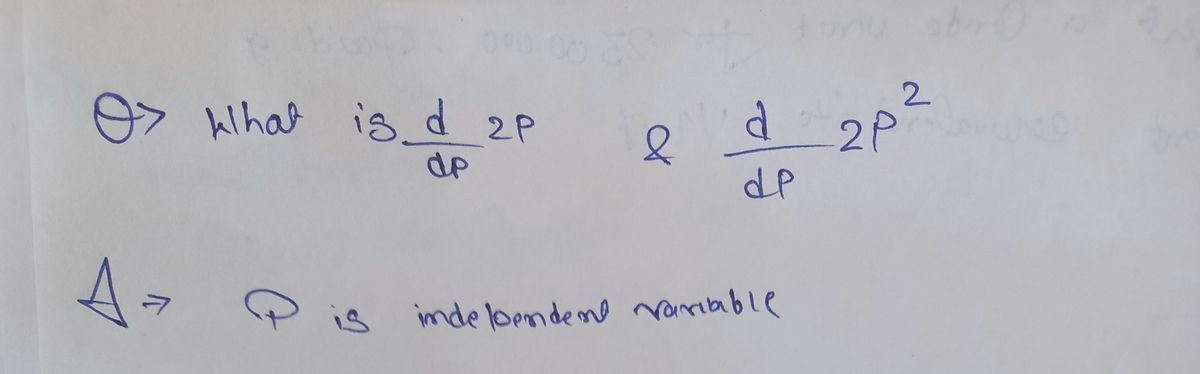 Q> What is d/dp 2P & d/dP 2P²
A ⇒ P is independent variable